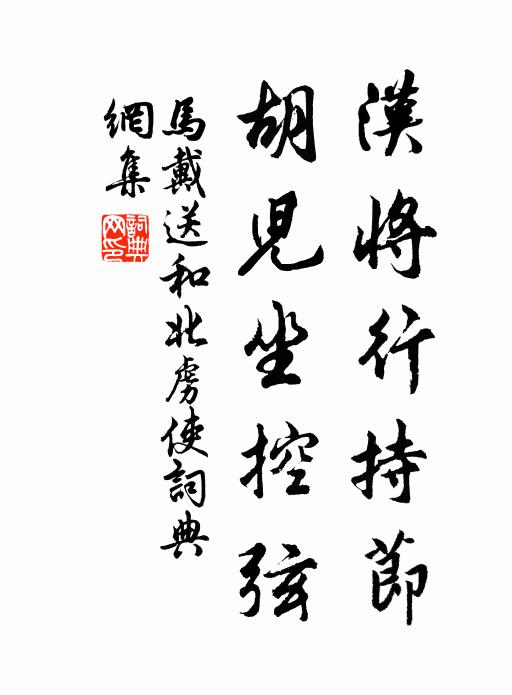 漢將行持節
胡兒坐控弦
馬戴送和北虜使詞典
網集
詞典
网印